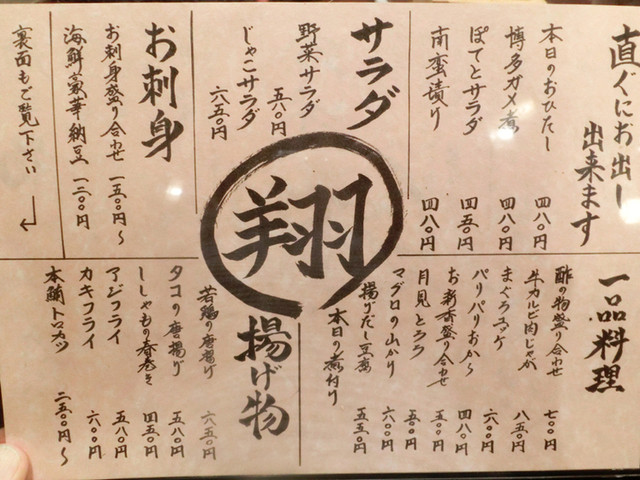 直ぐにお出し
出来ます
本日のおひたし 四八〇円
博多ガメ煮 四八〇円
ぽてとサラダ 四五〇円
南蛮漬け 四八〇円
サラダ
野菜サラダ 五八〇円
じゃこサラダ 六五〇円
お刺身
お刺身盛り合わせ 一五〇〇円〜
海鮮豪華納豆 一二〇〇円
裏面もご覧下さい
翔
一品料理
酢の物盛り合わせ 七〇〇円
牛カルビ肉じゃが 八五〇円
まぐろユッケ 六〇〇円
パリパリおから 四八〇円
お新香盛り合わせ 五〇〇円
月見とろろ 五〇〇円
マグロの山かけ 六〇〇円
揚げだし豆腐 五五〇円
本日の煮付け
揚げ物
若鶏の唐揚げ 六五〇円
タコの唐揚げ 五八〇円
ししゃもの春巻き 四五〇円
アジフライ 五八〇円
カキフライ 六〇〇円
本鮪トロカツ 二五〇〇円〜